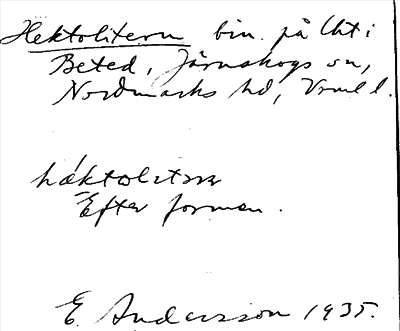 Hektolitern bin. på Ut i
Beted, Järnskogs sn,
Nordmarks hd, Vrml l.
hæktolıtərn
Efter formen.
E. Andersson 1935.